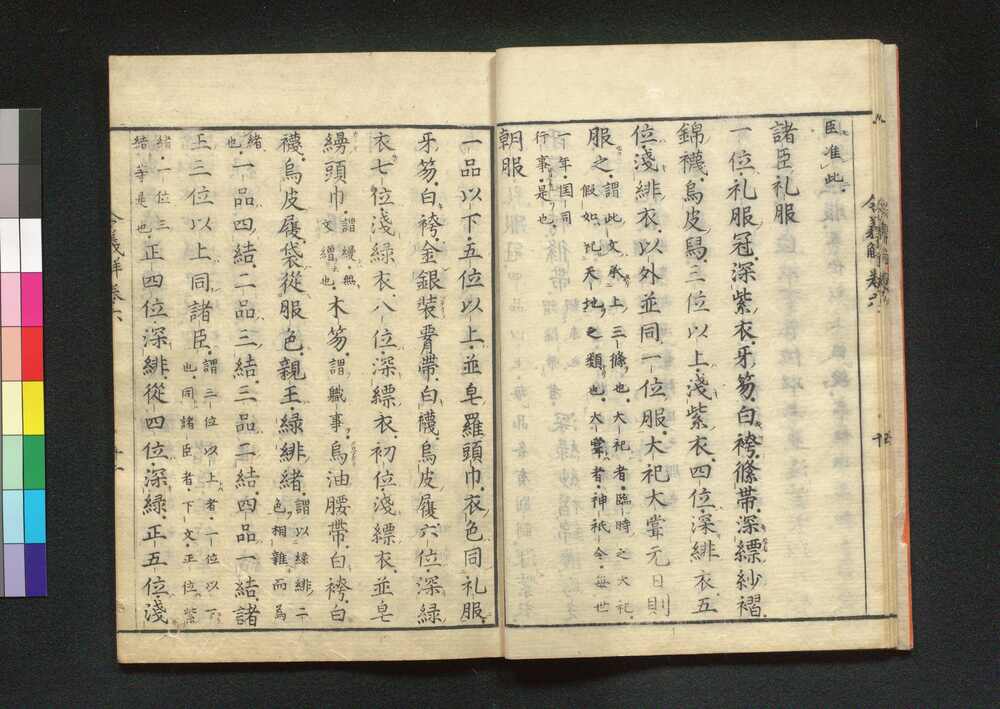 臣准此
諸臣礼服
一位礼服冠深紫衣牙笏白袴絛帯深縹紗褶
錦襪烏皮舄三位以上淺紫衣四位深緋衣五
位淺緋衣以外並同一位服大祀大甞元日則
服之謂此文承上三條也大祀者臨時之大祀
假如祀天地之類也大甞者神祇令毎世
一年国司
行事是也
朝服
一品以下五位以上並皂羅頭巾衣色同礼服
牙笏白袴金銀装署帯白襪烏皮履六位深緑
衣七位淺緑衣八位深縹衣初位淺縹衣並皂
縵頭巾謂縵無
文繒也木笏謂職事烏油腰帯白袴白
襪烏皮履袋從服色親王緑緋緒謂以緑緋二
色相雜而為
緒
也一品四結二品三結三品二結四品一結諸
王三位以上同諸臣謂三位以上者一位以下
也同諸臣者下文正位紫
緒一位三
結等是也正四位深緋從四位深緑正五位淺
令義解卷六
十五